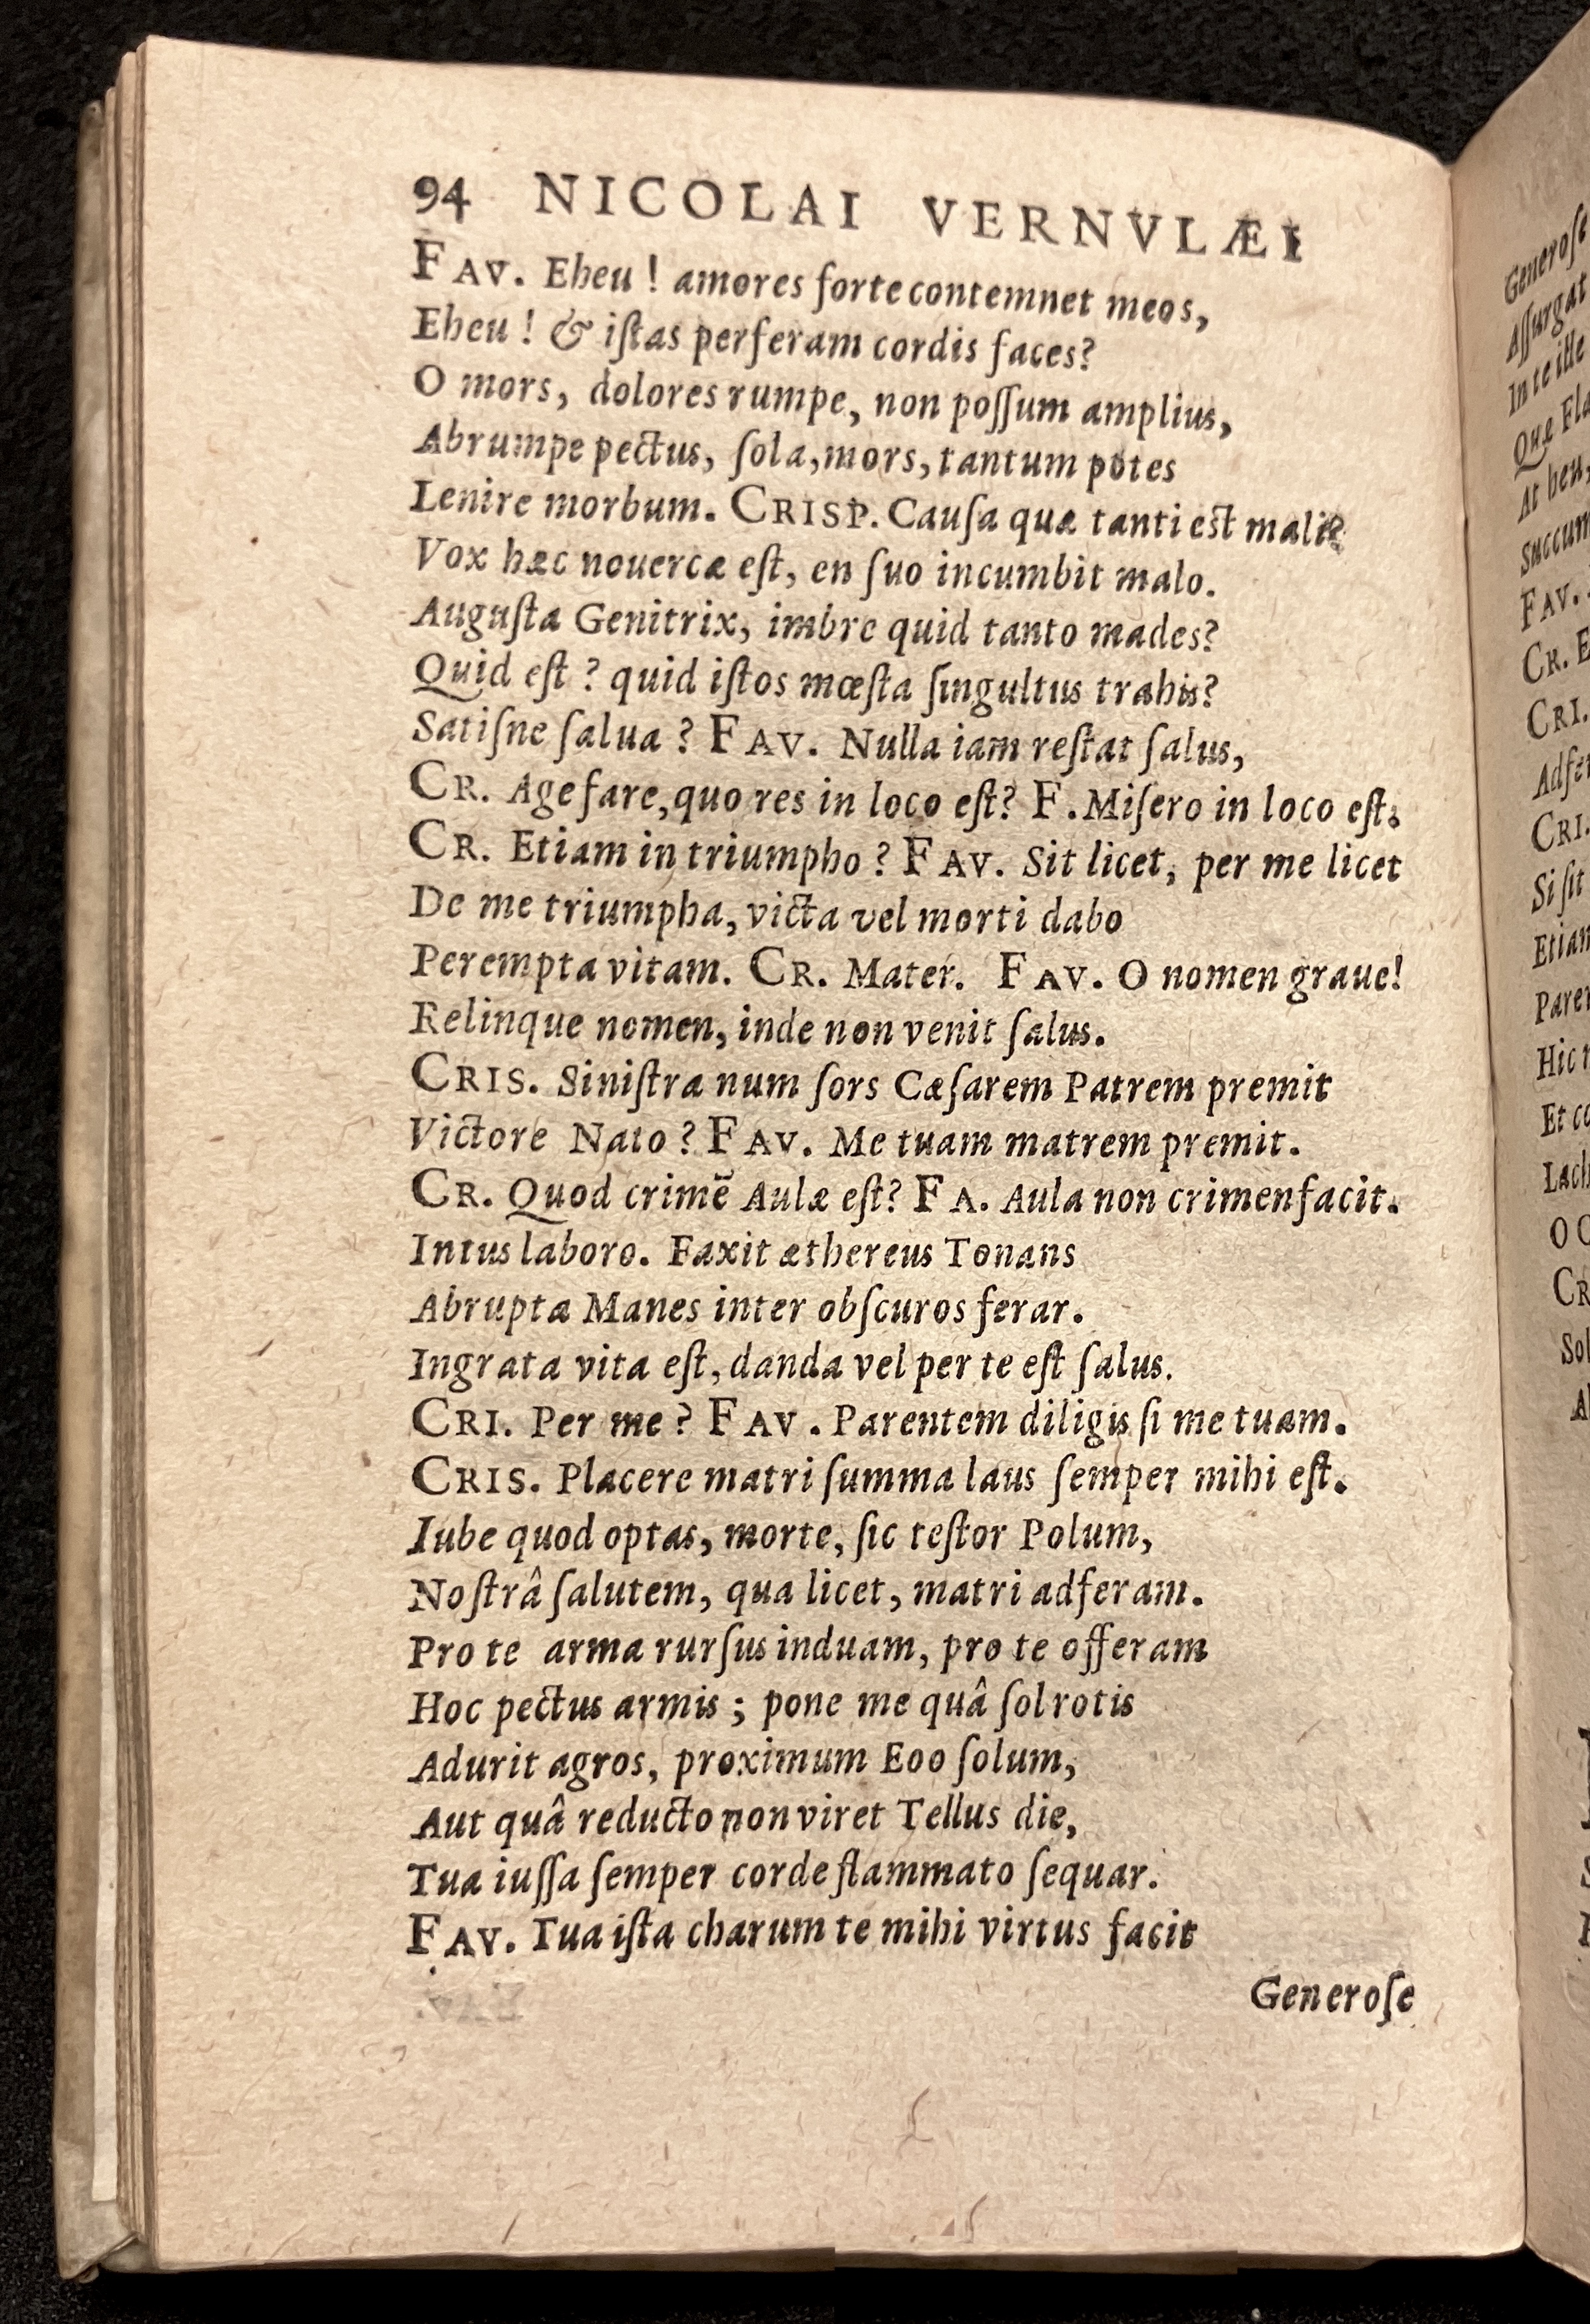 94 NICOLAI VERNVLÆI
FAV. Eheu ! amores forte contemnet meos,
Eheu ! & iſtas perferam cordis faces?
O mors, dolores rumpe, non poſſum amplius,
Abrumpe pectus, ſola, mors, tantum potes
Lenire morbum. CRISP. Cauſa quæ tanti est mali?
Vox hæc nouercæ eſt, en ſuo incumbit malo.
Auguſta Genitrix, imbre quid tanto mades?
Quid eſt ? quid iſtos mœſta ſingultus trahis?
Satiſne ſalua ? FAV. Nulla iam reſtat ſalus,
CR. Age fare, quo res in loco eſt? F. Miſero in loco eſt.
CR. Etiam in triumpho ? FAV. Sit licet, per me licet
De me triumpha, victa vel morti dabo
Perempta vitam. CR. Mater. FAV. O nomen graue!
Relinque nomen, inde non venit ſalus.
CRIS. Siniſtra num ſors Cæſarem Patrem premit
Victore Nato ? FAV. Me tuam matrem premit.
CR. Quod crimē Aulæ eſt? FA. Aula non crimen facit.
Intus laboro. Faxit æthereus Tonans
Abrupta Manes inter obſcuros ferar.
Ingrata vita eſt, danda vel per te eſt ſalus.
CRI. Per me ? FAV. Parentem diligis ſi me tuam.
CRIS. Placere matri ſumma laus ſemper mihi eſt.
Iube quod optas, morte, ſic teſtor Polum,
Noſtrâ ſalutem, qua licet, matri adferam.
Pro te arma rurſus induam, pro te offeram
Hoc pectus armis ; pone me quâ ſol rotis
Adurit agros, proximum Eoo ſolum,
Aut quâ reducto non viret Tellus die,
Tua iuſſa ſemper corde flammato ſequar.
FAV. Tua iſta charum te mihi virtus facit
Generoſe
Generoſe
Aſſurgat
In te ille
Quæ Fla
At heu,
Succum
FAV.
CR. E
CRI.
Adfer
CRI.
Si ſit
Etiam
Paren
Hic
Et co
Lach
O C
CR
Sol